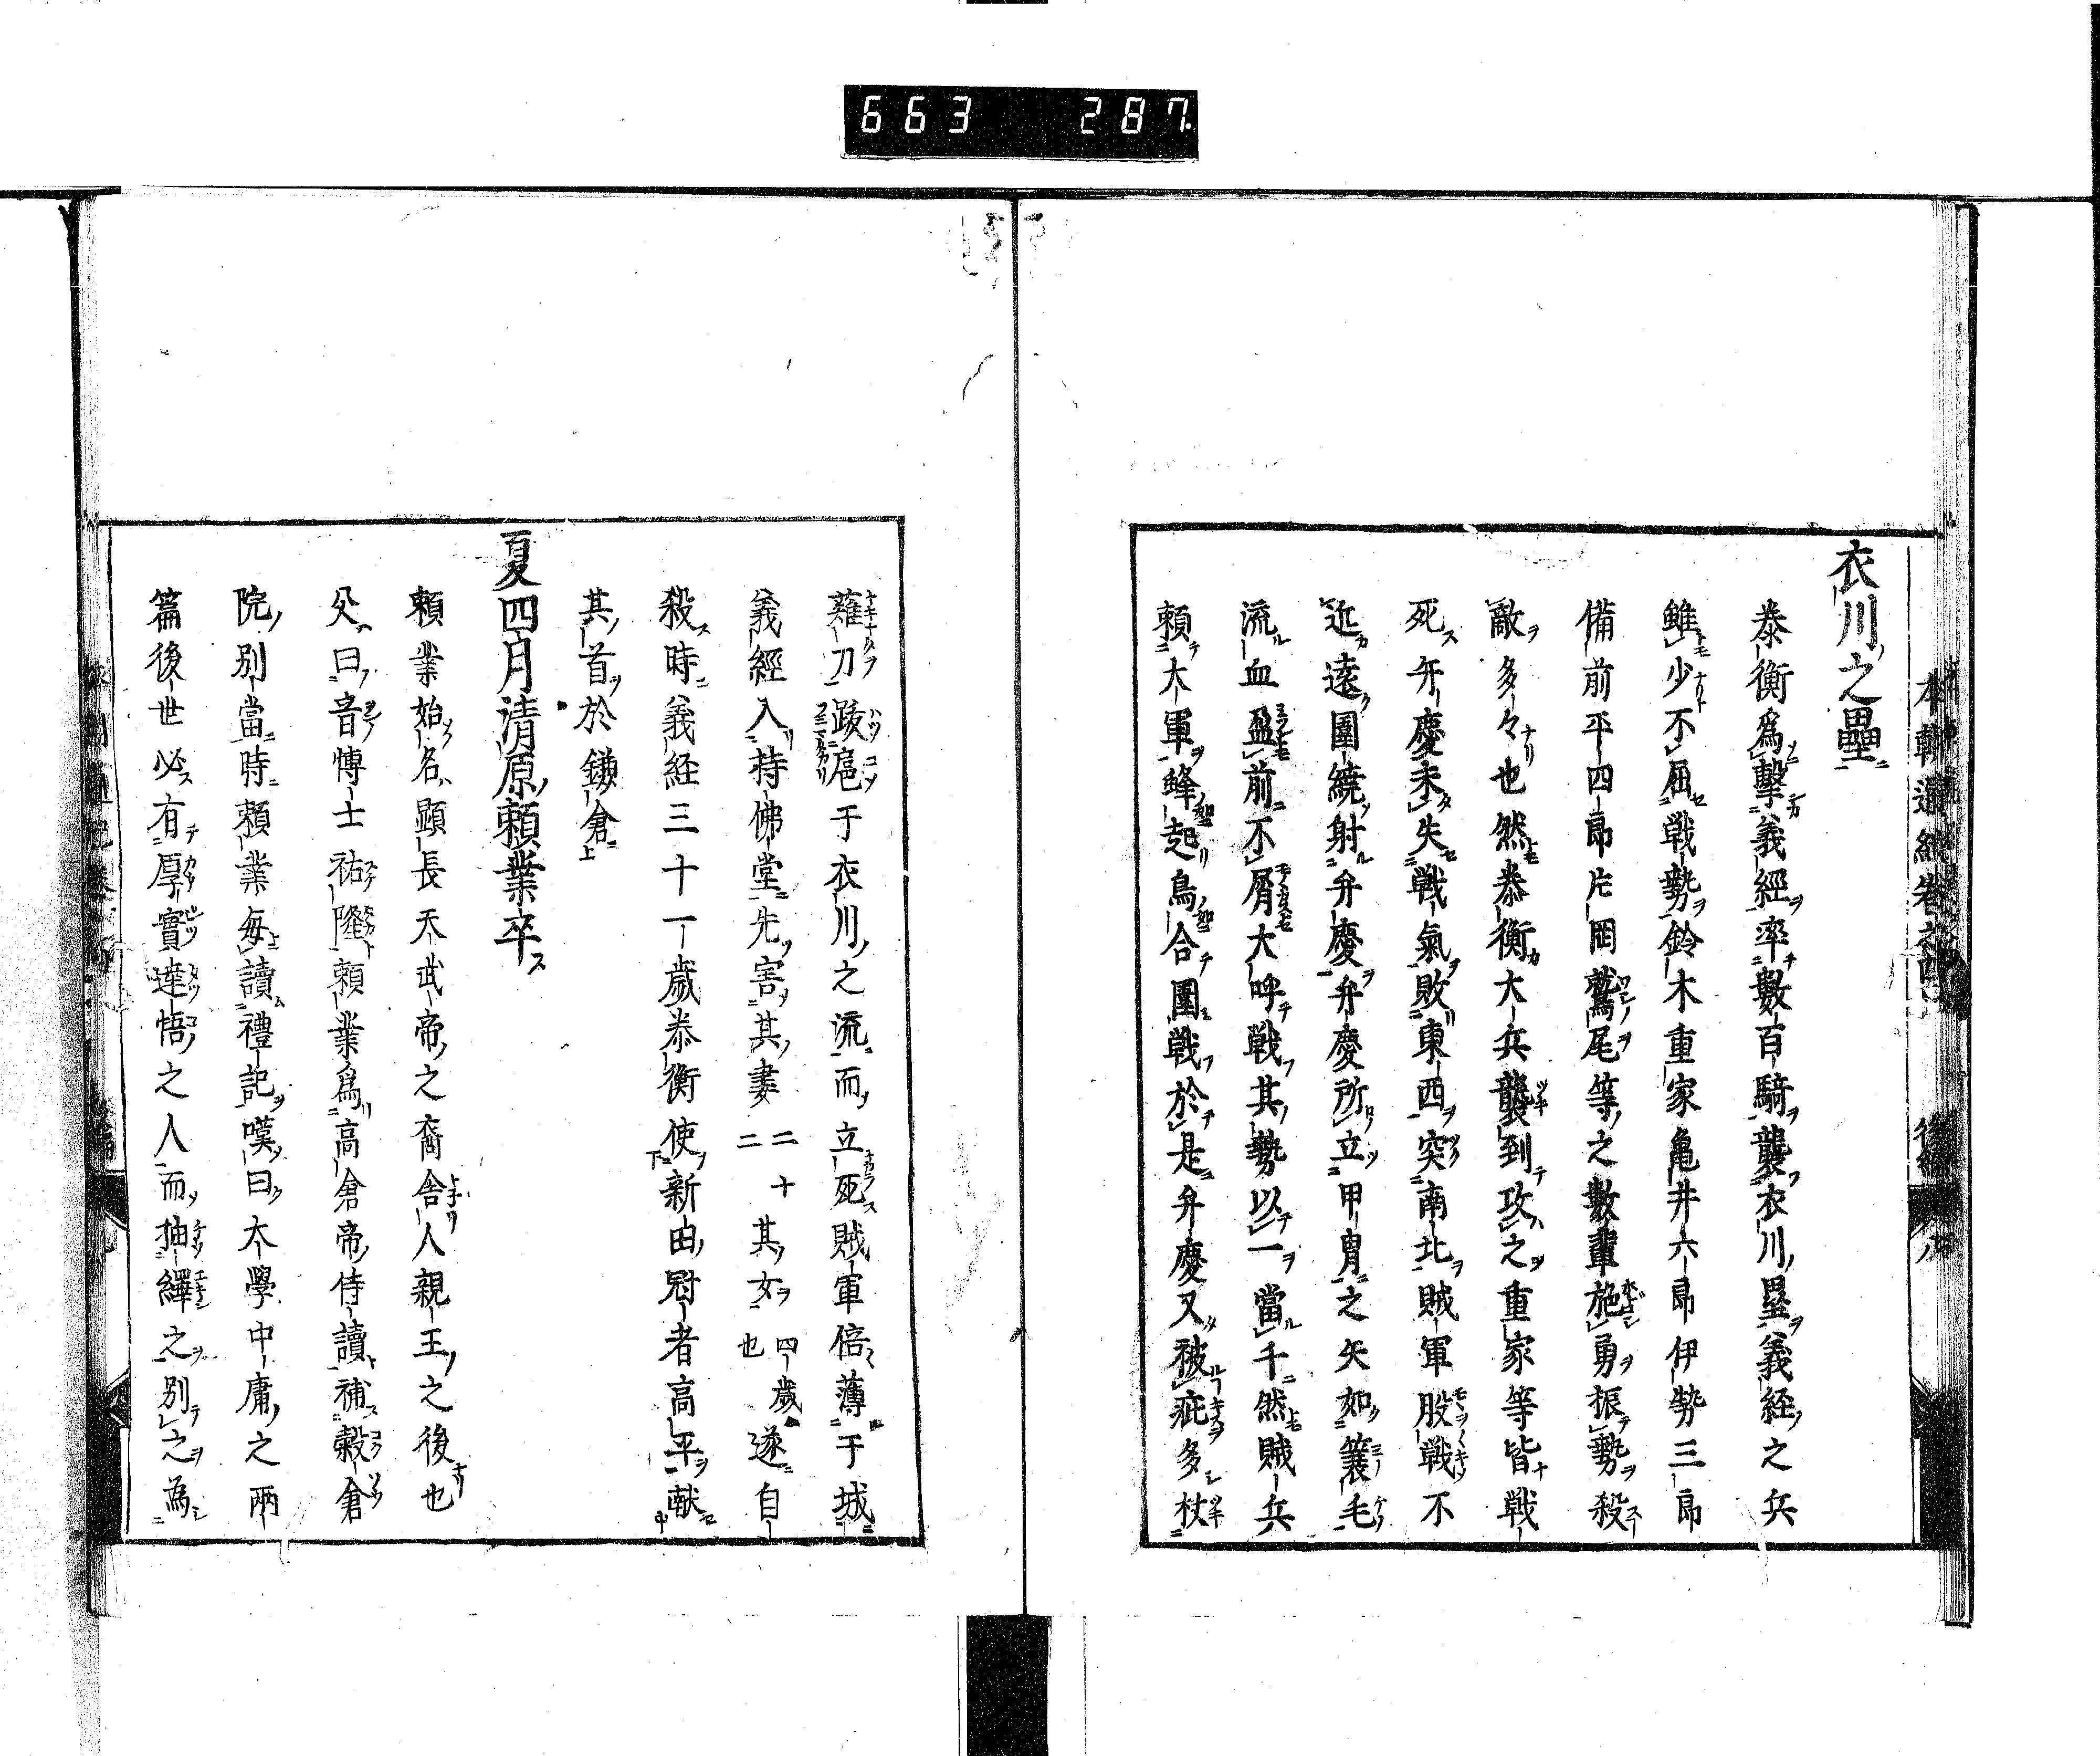 663 287
衣川之壘
泰衡爲擊義經率數百騎襲衣川壘義経之兵
雖少不屈戦勢鈴木重家亀井六郎伊勢三郎
備前平四郎片罡鷲尾等之數輩施勇振勢殺
敵多々也然泰衡大兵襲到攻之重家等皆戦
死弁慶未失戦氣敗東西突南北賊軍股戦不
近遠圍繞射弁慶弁慶所立甲冑之矢如簑毛
流血盈前不屑大呼戦其勢以一當千然賊兵
頼大軍蜂起鳥合圍戦於是弁慶又被疵多杖
薙刀跋扈于衣川之流而立死賊軍倍薄于城
義經入持佛堂先害其妻二十二其女四歳也遂自
殺時義経三十一歳泰衡使新田冠者高平献
其首於鎌倉
夏四月清原頼業卒
頼業始名顕長天武帝之裔舎人親王之後也
父曰音博士祐隆頼業爲高倉帝侍讀補穀倉
院別當時頼業毎讀禮記嘆曰大學中庸之兩
篇後世必有厚實達悟之人而抽繹之別之為